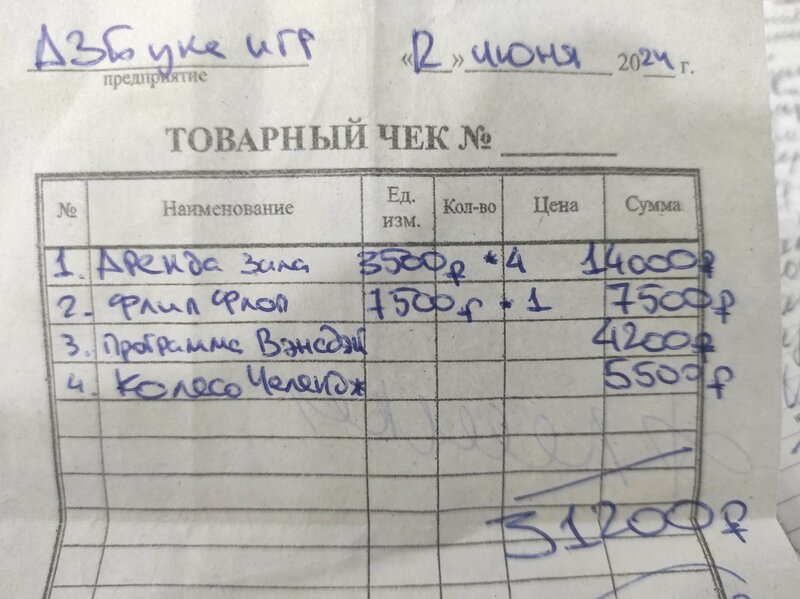 Азбука игр «12» июня 2024 г.
предприятие
ТОВАРНЫЙ ЧЕК №
№ Наименование Ед. изм. Кол-во Цена Сумма
1. Аренда зала 3500₽ * 4 14000₽
2. Флип Флоп 7500₽ * 1 7500₽
3. Программа Вэнсдэй 4200₽
4. Колесо Челендж 5500₽
31200₽